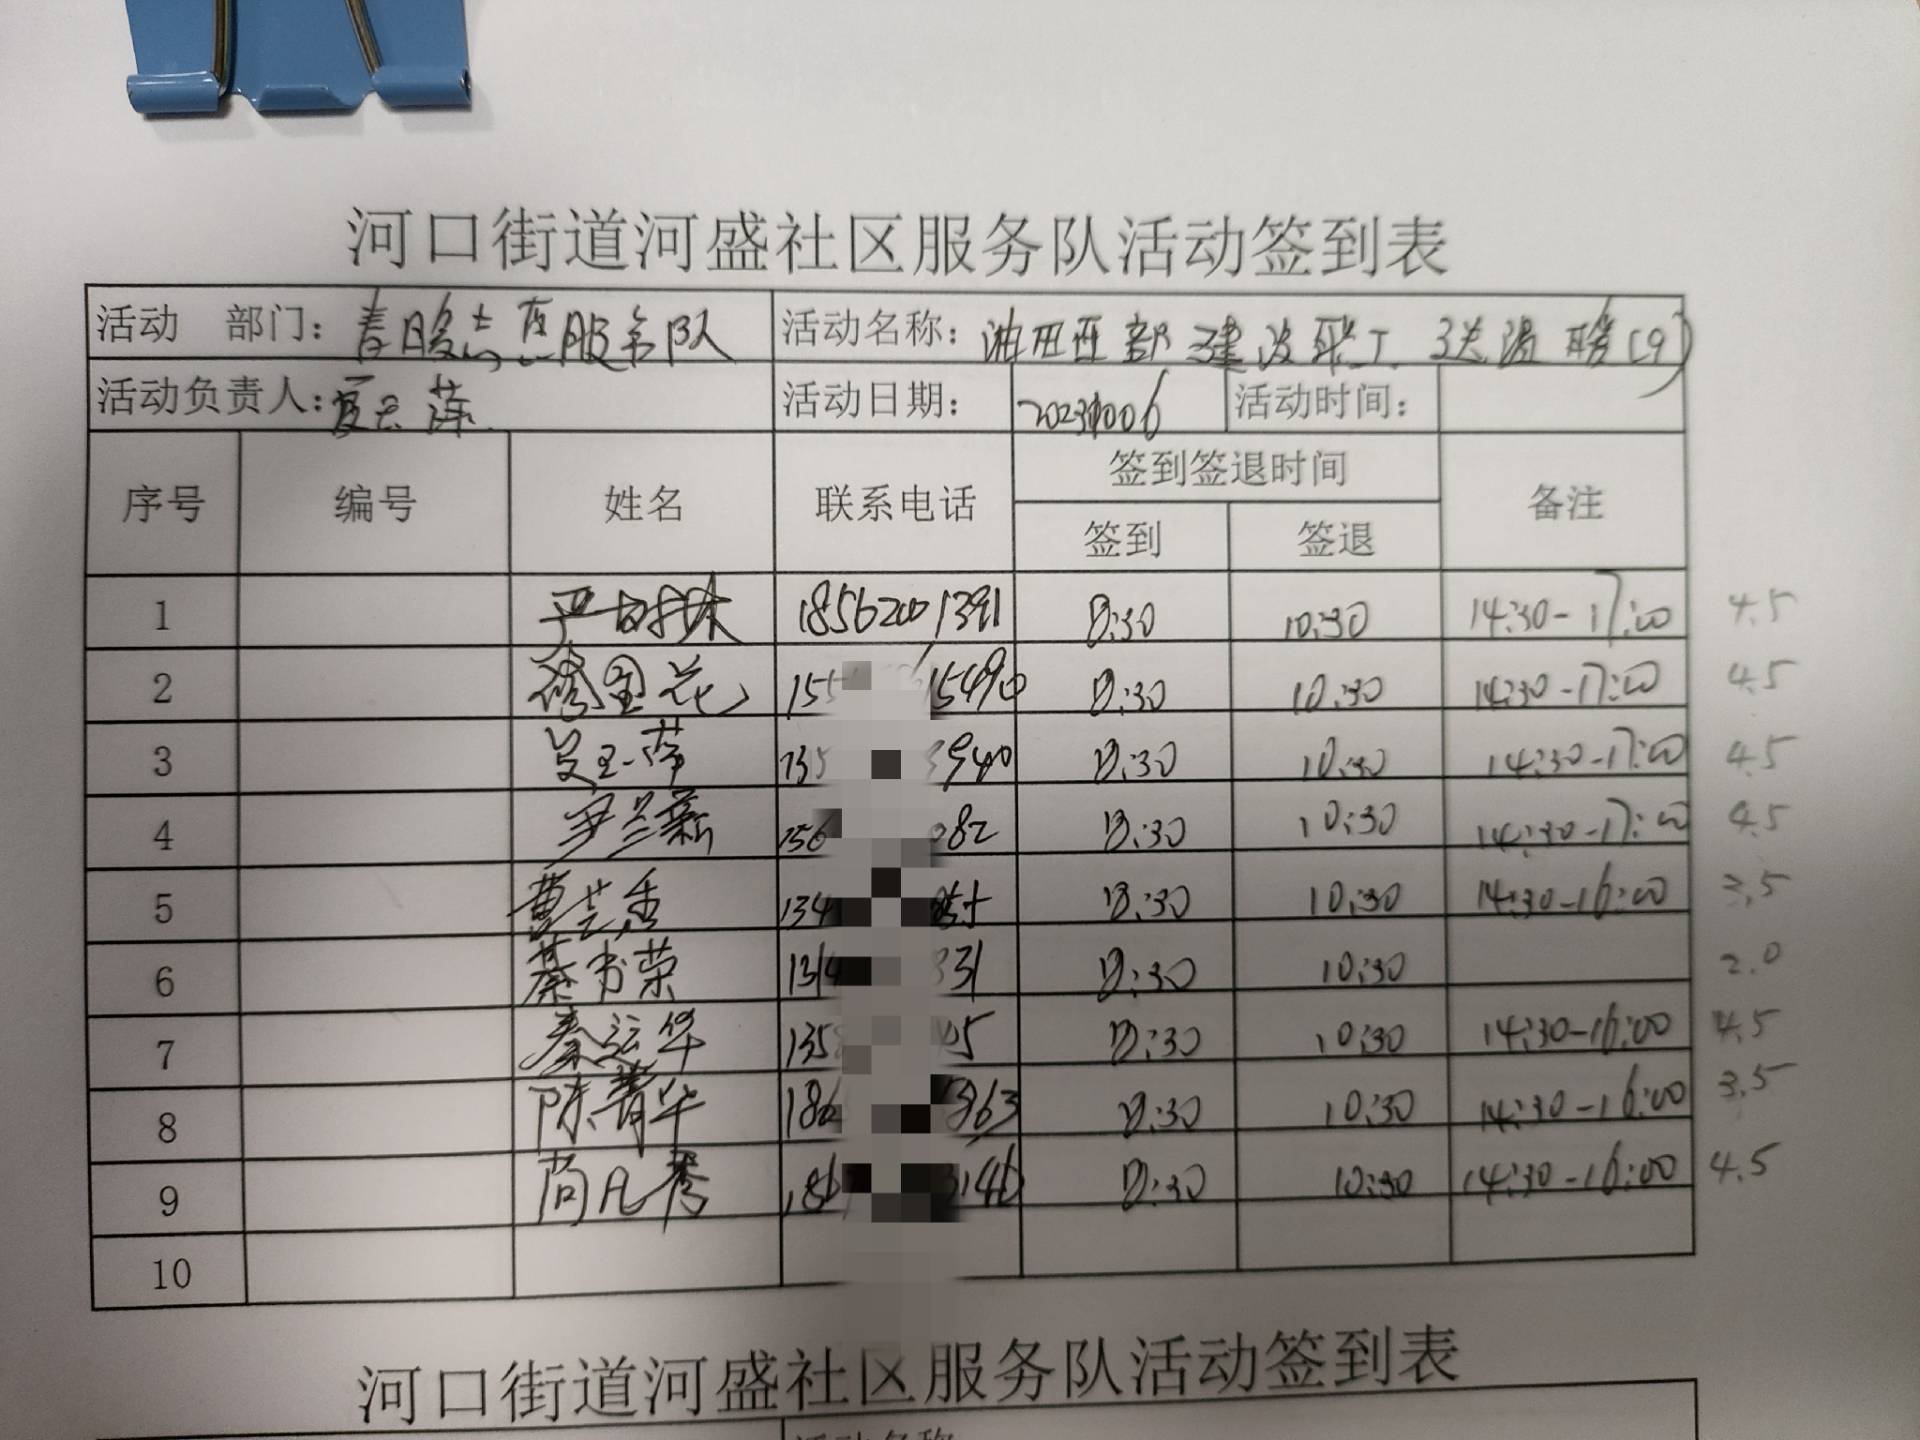 河口街道河盛社区服务队活动签到表
活动 部门: 服务队 活动名称: 油田西部建设职工送温暖(9)
活动负责人: 活动日期: 20231006 活动时间:
序号 编号 姓名 联系电话 签到签退时间 备注
签到 签退
1 18562001391 8:30 10:30 14:30-17:00 4.5
2 花 155 15490 8:30 10:30 14:30-17:00 4.5
3 135 3940 8:30 10:30 14:30-17:00 4.5
4 尹兰新 156 082 8:30 10:30 14:30-17:00 4.5
5 曹兰香 134 8:30 10:30 14:30-16:00 3.5
6 蔡书荣 134 831 8:30 10:30 2.0
7 秦运华 135 5 8:30 10:30 14:30-16:00 4.5
8 陈菁华 186 3963 8:30 10:30 14:30-16:00 3.5
9 尚凡秀 186 3146 8:30 10:30 14:30-16:00 4.5
10
河口街道河盛社区服务队活动签到表
活动名称